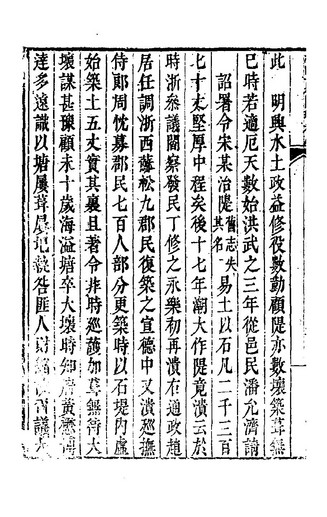 此　明興水土政益修役數動顧隄亦數壞築葺無
已時若適厄天數始洪武之三年從邑民潘允濟請
詔署令宋某治隄舊志失其名易土以石凡二千三百
七十丈堅厚中程矣後十七年潮大作隄竟潰云於
時浙參議閻察發民丁修之永樂初再潰右通政趙
居任調浙西蘇松九郡民復築之宣德中又潰巡撫
侍郎周忱募郡民七百人部分更築時以石堤內虛
始築土五丈實其裏且著令非時巡護加葺無待大
壞謀甚豫顧未十歲海溢塘卒大壞時知黃懋
達多遠識以塘屢葺屢圮孰咎匪人